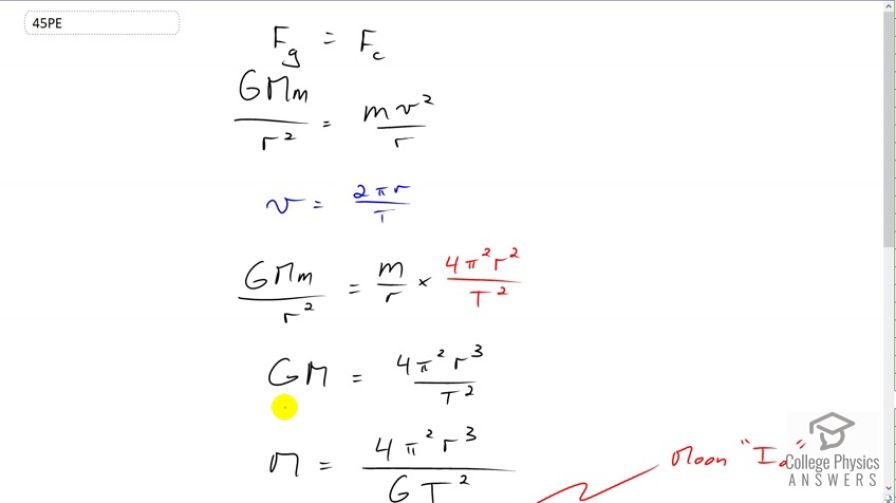 45PE
F_g = F_c
GMm/r² = mv²/r
v = 2πr/T
GMm/r² = m/r × 4π²r²/T²
GM = 4π²r³/T²
M = 4π²r³/GT²
Moon "I
College Physics
ANSWERS